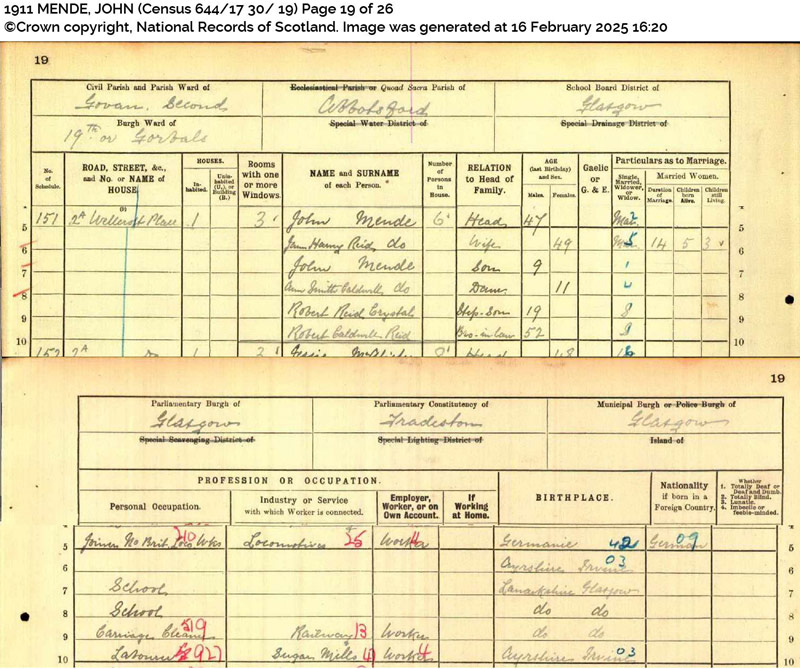 1911 MENDE, JOHN (Census 644/17 30/ 19) Page 19 of 26
©Crown copyright, National Records of Scotland. Image was generated at 16 February 2025 16:20
19
Civil Parish and Parish Ward of
Govan. Second
Ecclesiastical Parish or Quoad Sacra Parish of
Abbotsford
School Board District of
Glasgow
Burgh Ward of
19th or Gorbals
Special Water District of
Special Drainage District of
No. of Schedule.
ROAD, STREET, &c., and No. or NAME of HOUSE.
HOUSES.
Inhabited.
Uninhabited (U.), or Building (B.)
Rooms with one or more Windows
NAME and SURNAME of each Person.
Number of Persons in House.
RELATION to Head of Family.
AGE (last Birthday) and Sex.
Males.
Females.
Gaelic or G. & E.
Particulars as to Marriage.
Single, Married, Widower, or Widow.
Married Women.
Duration of Marriage.
Children born Alive.
Children still Living.
151 2A Place 1 3 John Mende 6 Head 47 5
Reid do Wife 49 14 5 3 6
7 John Mende Son 9 1 7
8 Ann Smith Caldwell do Daur 11 8
9 Robert Reid Crystal Step-Son 19 8 9
10 Robert Caldwell Reid Bro-in-law 52 9 10
152 2A do 1 Jessie Head 48
19
Parliamentary Burgh of
Glasgow
Parliamentary Constituency of
Tradeston
Municipal Burgh or Police Burgh of
Glasgow
Special Scavenging District of
Special Lighting District of
Island of
PROFESSION OR OCCUPATION.
Personal Occupation.
Industry or Service with which Worker is connected.
Employer, Worker, or on Own Account.
If Working at Home.
BIRTHPLACE.
Nationality if born in a Foreign Country.
Whether
1. Totally Deaf or Deaf and Dumb.
2. Totally Blind.
3. Lunatic.
4. Imbecile or feeble-minded.
5 Joiner No Brit. Loco Wks Locomotives Worker Germanie 42 German 09 5
6 Ayrshire Irvine 03 6
7 School Lanarkshire Glasgow 7
8 School do do 8
9 Carriage Cleaner Railway 13 Worker do do 9
10 Labourer Sugar Mills Worker Ayrshire Irvine 03 10